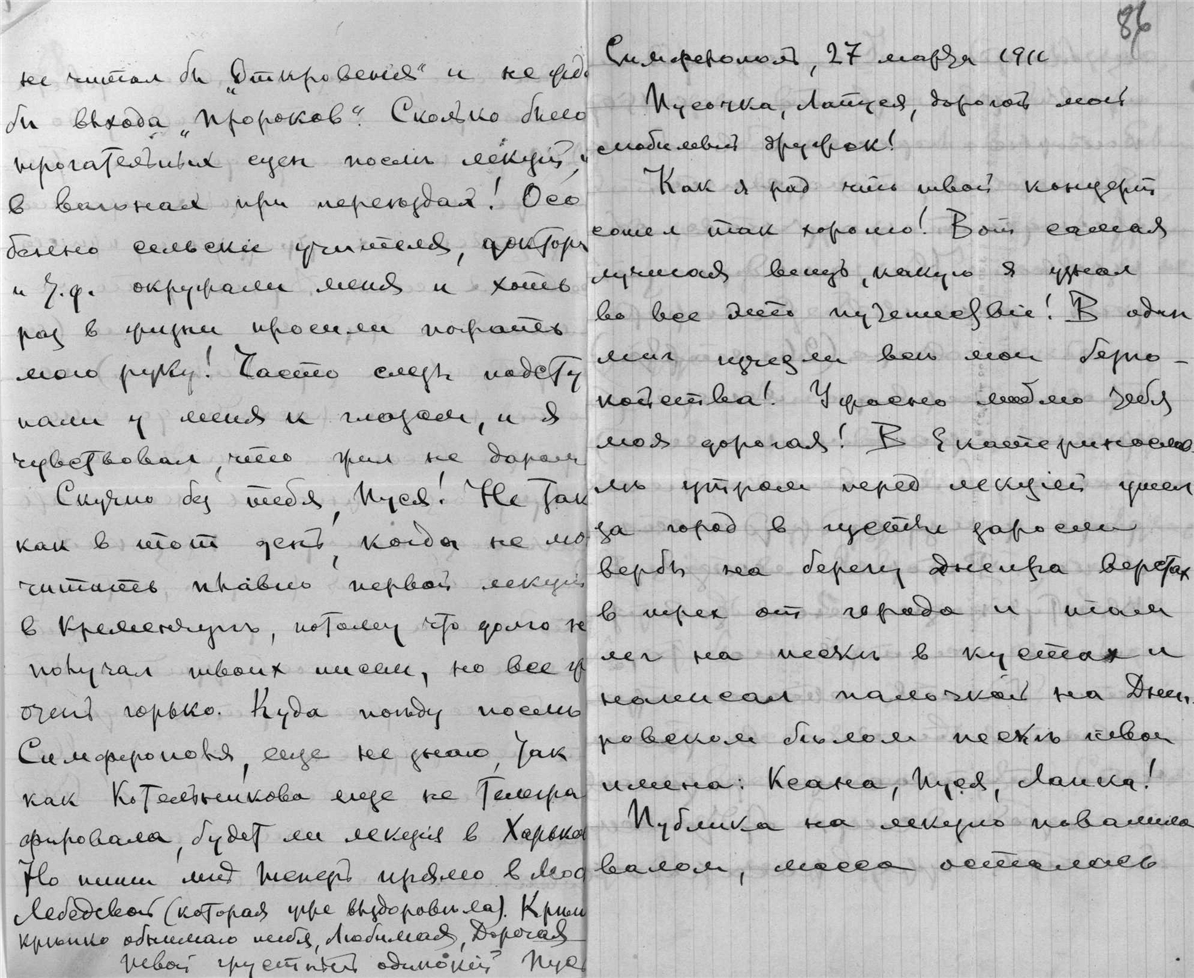 не читал бы „Откровенія“ и не
бы выхода „Пророков“. Сколько было
трогательных сцен послѣ лекцій,
в вагонах при переѣздах! Осо
бенно сельскіе учителя, доктора
и т.д. окружали меня и хоть
раз в жизни просили пожать
мою руку! Часто слезы подсту
пали у меня к глазам, и я
чувствовал, что жил не даром
Скучно без тебя, Пуся! Не так
как в тот день, когда не мо
читать плавно первой лекціи
в Кременчугѣ, потому что долго н
получал твоих писем, но все ж
очень горько. Куда поѣду послѣ
Симферополя, еще не знаю, так
как Котельникова еще не телегра
фировала, будет ли лекція в Харько
Но пиши мнѣ теперь прямо в Мос
Лебедевой (которая уже выздоровѣла). Крѣпк
крѣпко обнимаю тебя, Любимая, Дорогая
Твой грустный одинокій Пус
86
Симферополь, 27 марта 1911
Пусочка, Лапуся, дорогой мой
любимый дружок!
Как я рад что твой концерт
сошел так хорошо! Вот самая
лучшая вещь, какую я узнал
во все это путешествіе! В один
миг исчезли всѣ мои безпо-
койства! Ужасно люблю тебя
моя дорогая! В Екатериносла
лѣ утром перед лекціей ушел
за город в густыя заросли
вербы на берегу Днепра верстах
в трех от города и там
лег на пескѣ в кустах и
написал палочкой на Днѣп
ровском бѣлом пескѣ твои
имена: Ксана, Пуся, Лапка!
Публика на лекцію повалила
валом, масса осталась